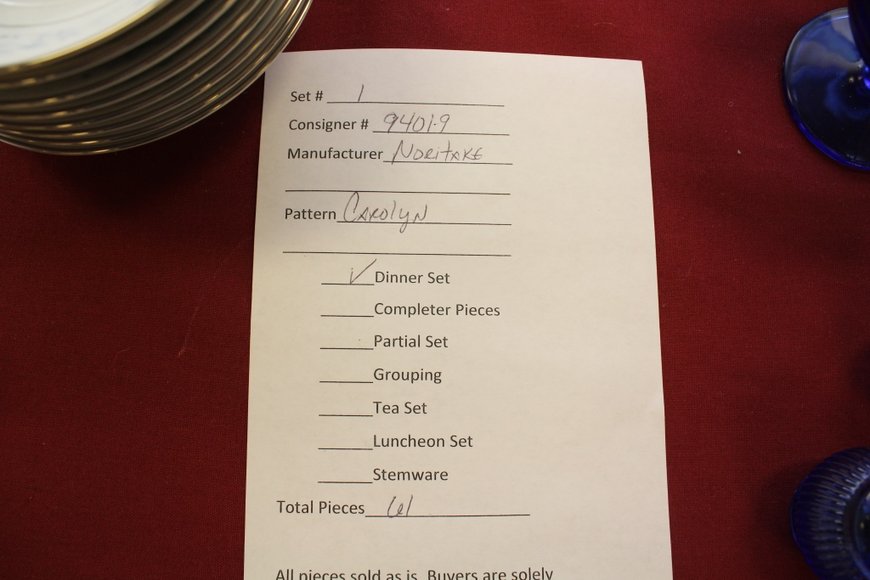 Set # 1
Consigner # 9401-9
Manufacturer Noritake
Pattern Carolyn
✓ Dinner Set
Completer Pieces
Partial Set
Grouping
Tea Set
Luncheon Set
Stemware
Total Pieces 61
All pieces sold as is. Buyers are solely